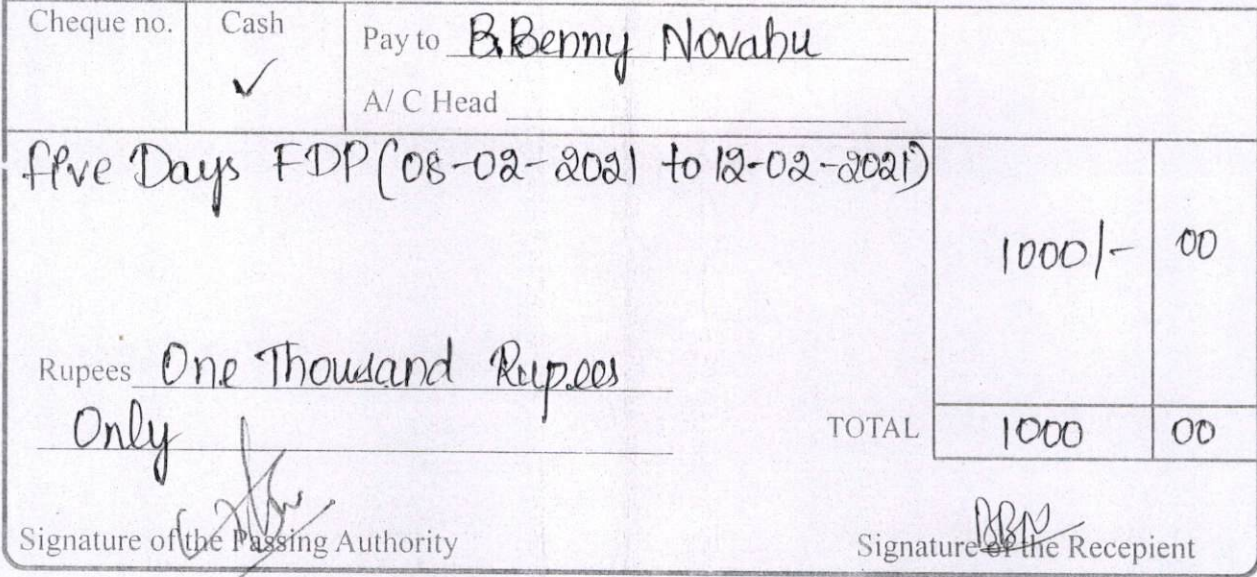 Cheque no. Cash Pay to B.Benny Novahu
✓ A/ C Head
five Days FDP (08-02-2021 to 12-02-2021)
1000/- 00
Rupees One Thousand Rupees
Only TOTAL 1000 00
BBN
Signature of the Passing Authority Signature of the Recepient